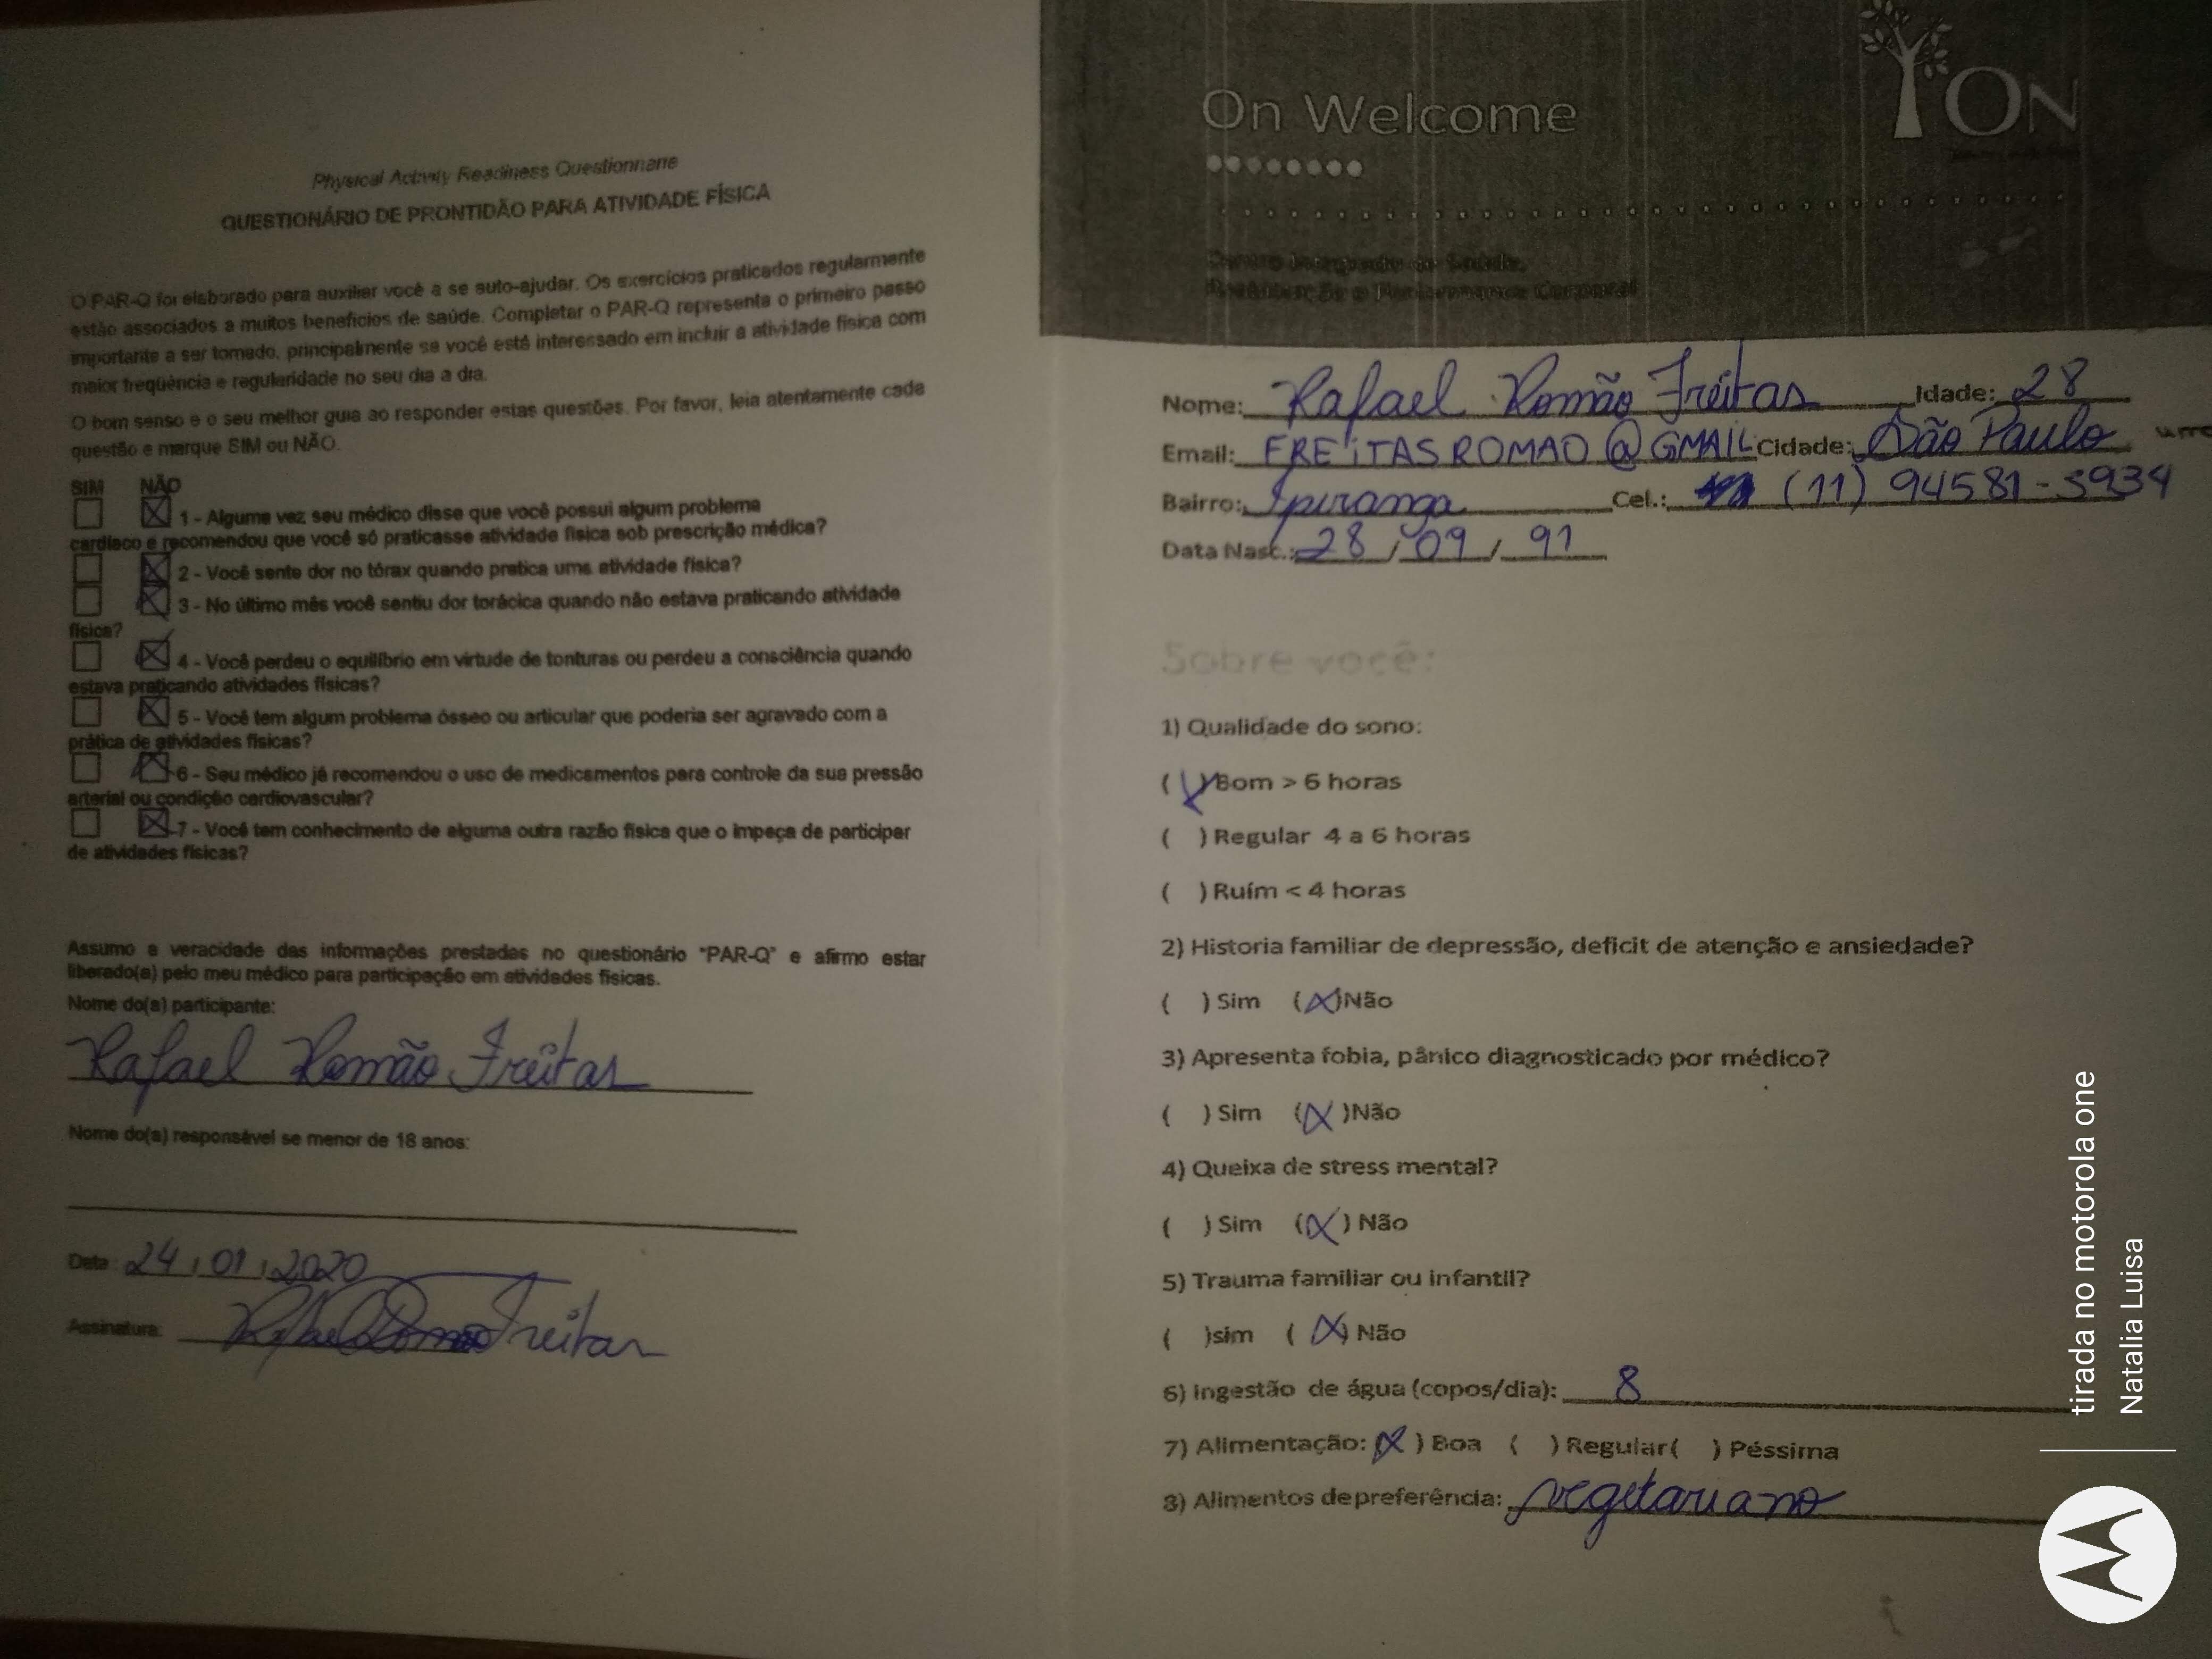 Physical Activity Readiness Questionnaire
QUESTIONÁRIO DE PRONTIDÃO PARA ATIVIDADE FÍSICA
O PAR-Q foi elaborado para auxiliar você a se auto-ajudar. Os exercícios praticados regularmente
estão associados a muitos benefícios de saúde. Completar o PAR-Q representa o primeiro passo
importante a ser tomado, principalmente se você está interessado em incluir a atividade física com
maior freqüência e regularidade no seu dia a dia.
O bom senso e o seu melhor guia ao responder estas questões. Por favor, leia atentamente cada
questão e marque SIM ou NÃO.
SIM NÃO
☐ ☒ 1 - Alguma vez seu médico disse que você possui algum problema
cardíaco e recomendou que você só praticasse atividade física sob prescrição médica?
☐ ☒ 2 - Você sente dor no tórax quando pratica uma atividade física?
☐ ☒ 3 - No último mês você sentiu dor torácica quando não estava praticando atividade
física?
☐ ☒ 4 - Você perdeu o equilíbrio em virtude de tonturas ou perdeu a consciência quando
estava praticando atividades físicas?
☐ ☒ 5 - Você tem algum problema ósseo ou articular que poderia ser agravado com a
prática de atividades físicas?
☐ ☒ 6 - Seu médico já recomendou o uso de medicamentos para controle da sua pressão
arterial ou condição cardiovascular?
☐ ☒ 7 - Você tem conhecimento de alguma outra razão física que o impeça de participar
de atividades físicas?
Assumo a veracidade das informações prestadas no questionário "PAR-Q" e afirmo estar
liberado(a) pelo meu médico para participação em atividades físicas.
Nome do(a) participante:
Rafael Romão Freitas
Nome do(a) responsável se menor de 18 anos:
Data: 24/01/2020
Assinatura: Rafael Romão Freitas
On Welcome
ON
Nome: Rafael Romão Freitas Idade: 28
Email: FREITASROMAO@GMAIL Cidade: São Paulo
Bairro: Ipiranga Cel.: (11) 94581-5934
Data Nasc.: 28/09/91
Sobre você:
1) Qualidade do sono:
(X) Bom > 6 horas
( ) Regular 4 a 6 horas
( ) Ruím < 4 horas
2) Historia familiar de depressão, deficit de atenção e ansiedade?
( ) Sim (X) Não
3) Apresenta fobia, pânico diagnosticado por médico?
( ) Sim (X) Não
4) Queixa de stress mental?
( ) Sim (X) Não
5) Trauma familiar ou infantil?
( )sim (X) Não
6) Ingestão de água (copos/dia): 8
7) Alimentação: (X) Boa ( ) Regular( ) Péssima
8) Alimentos de preferência: vegetariano
tirada no motorola one
Natalia Luisa